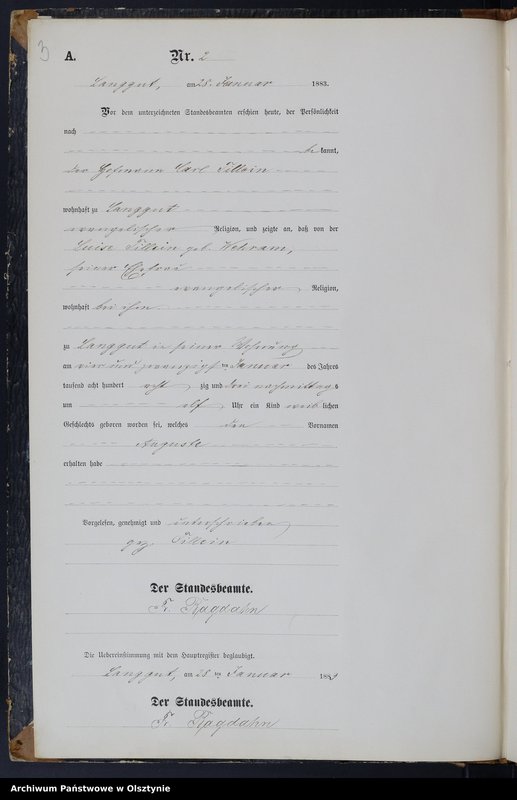 3
A. Nr. 2
Langgut, am 25. Januar 1883.
Vor dem unterzeichneten Standesbeamten erschien heute, der Persönlichkeit
nach
be kannt,
der Hofmann Carl Tillein
wohnhaft zu Langgut
evangelischer Religion, und zeigte an, daß von der
Luise Tillein geb. Wehram,
seiner Ehefrau
evangelischer Religion,
wohnhaft bei ihm
zu Langgut in seiner Wohnung
am vier und zwanzigsten Januar des Jahres
tausend acht hundert acht zig und drei nachmittags
um elf Uhr ein Kind weib lichen
Geschlechts geboren worden sei, welches den Vornamen
Auguste
erhalten habe
Vorgelesen, genehmigt und unterschrieben
gez. Tillein
Der Standesbeamte.
Fr. Ragdahn
Die Uebereinstimmung mit dem Hauptregister beglaubigt.
Langgut, am 25 ten Januar 1883
Der Standesbeamte.
Fr. Ragdahn
Archiwum Państwowe w Olsztynie